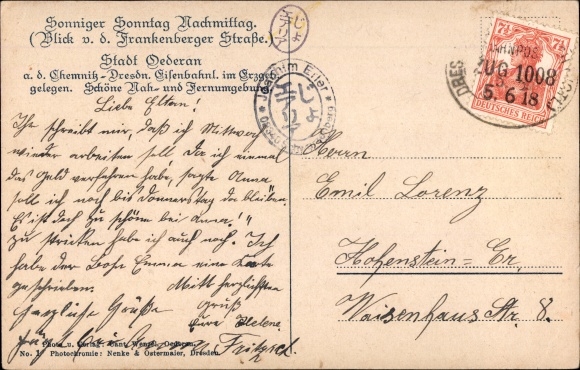 Sonniger Sonntag Nachmittag.
(Blick v. d. Frankenberger Straße.)
Stadt Oederan
a. d. Chemnitz-Dresdn. Eisenbahnl. im Erzgeb.
gelegen. Schöne Nah- und Fernumgebung.
Liebe Eltern!
Ihr schreibt mir, daß ich Mittwoch
wieder arbeiten soll. Da ich einmal
das Geld verfahren habe, sagte Anna
soll ich noch bis Donnerstag da bleiben.
Es ist doch zu schöne bei Anna!"
Zu stricken habe ich auch noch. Ich
habe der Emma eine Karte
geschrieben. Mitt herzlichsten
Gruß
Eure Helene
herzliche Grüße
Fritzsch.
Photo u.
No. 1 Photochromie: Nenke & Ostermaier, Dresden.
Joachim Erler
7½ 7½
DEUTSCHES REICH
BAHNPOST
ZUG 1008
5.6.18
DRES
Herrn
Emil Lorenz
Hohenstein-Er.
Waisenhaus Str. 8.